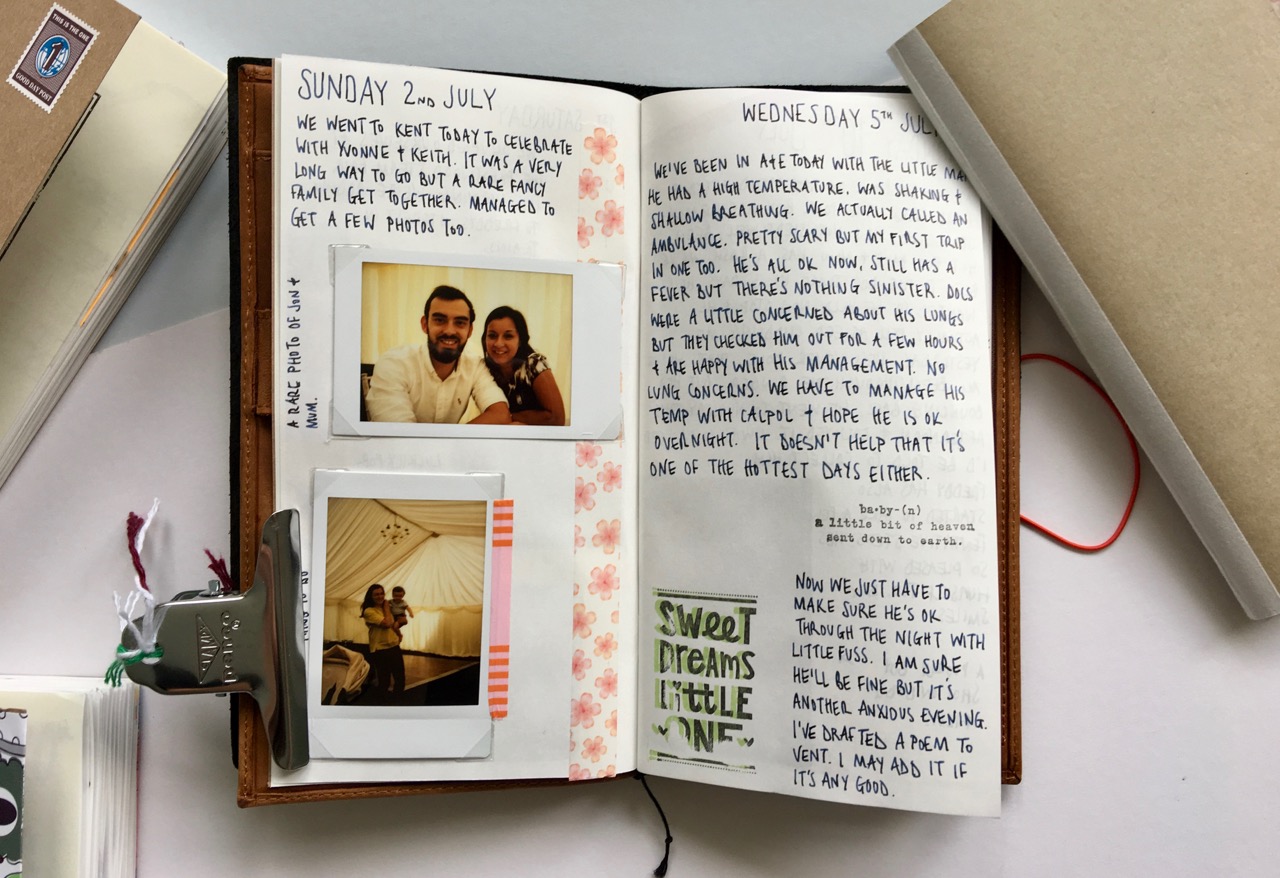 THIS IS THE ONE
1
GOOD DAY POST
SUNDAY 2ND JULY
WE WENT TO KENT TODAY TO CELEBRATE
WITH YVONNE + KEITH. IT WAS A VERY
LONG WAY TO GO BUT A RARE FANCY
FAMILY GET TOGETHER. MANAGED TO
GET A FEW PHOTOS TOO.
A RARE PHOTO OF JON +
MUM.
WEDNESDAY 5TH JULY
WE'VE BEEN IN A+E TODAY WITH THE LITTLE MAN
HE HAD A HIGH TEMPERATURE, WAS SHAKING +
SHALLOW BREATHING. WE ACTUALLY CALLED AN
AMBULANCE. PRETTY SCARY BUT MY FIRST TRIP
IN ONE TOO. HE'S ALL OK NOW, STILL HAS A
FEVER BUT THERE'S NOTHING SINISTER. DOCS
WERE A LITTLE CONCERNED ABOUT HIS LUNGS
BUT THEY CHECKED HIM OUT FOR A FEW HOURS
+ ARE HAPPY WITH HIS MANAGEMENT. NO
LUNG CONCERNS. WE HAVE TO MANAGE HIS
TEMP WITH CALPOL + HOPE HE IS OK
OVERNIGHT. IT DOESN'T HELP THAT IT'S
ONE OF THE HOTTEST DAYS EITHER.
ba·by-(n)
a little bit of heaven
sent down to earth.
SWeeT
DReaMS
LiTTLE
ONE
NOW WE JUST HAVE TO
MAKE SURE HE'S OK
THROUGH THE NIGHT WITH
LITTLE FUSS. I AM SURE
HE'LL BE FINE BUT IT'S
ANOTHER ANXIOUS EVENING.
I'VE DRAFTED A POEM TO
VENT. I MAY ADD IT IF
IT'S ANY GOOD.
penco